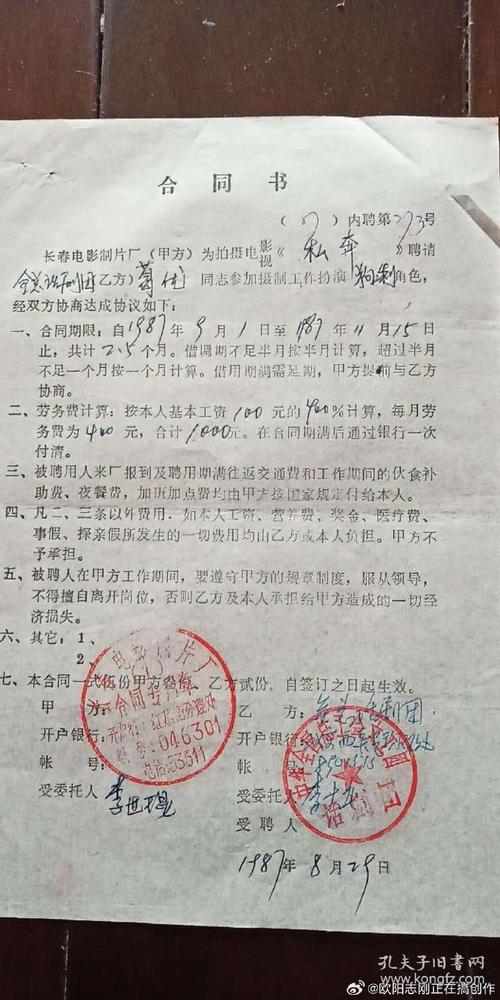 合同书
(87)内聘第273号
长春电影制片厂(甲方)为拍摄电影视《私奔》聘请
全总话剧团(乙方)葛优同志参加摄制工作扮演 角色,
经双方协商达成协议如下:
一、合同期限:自1987年9月1日至1987年11月15日
止,共计2.5个月。借调期不足半月按半月计算,超过半月
不足一个月按一个月计算。借用期满需延期,甲方提前与乙方
协商。
二、劳务费计算:按本人基本工资100元的400%计算,每月劳
务费为400元,合计1000元。在合同期满后通过银行一次
付清。
三、被聘用人来厂报到及聘用期满往返交通费和工作期间的伙食补
助费、夜餐费,加班加点费均由甲方按国家规定付给本人。
四、凡二、三条以外费用,如本人工资、营养费、奖金、医疗费、
事假、探亲假所发生的一切费用均由乙方或本人负担。甲方不
予承担。
五、被聘人在甲方工作期间,要遵守甲方的规章制度,服从领导,
不得擅自离开岗位,否则乙方及本人承担给甲方造成的一切经
济损失。
六、其它:1、
2、
七、本合同一式伍份甲方叁份,乙方贰份,自签订之日起生效。
甲方: 乙方:全总话剧团
开户银行: 开户银行:
帐号: 帐号:
受委托人 李世 受委托人 李
受聘人
1987年8月29日
电影制片厂
合同专用章
046301
电话:53511
中华全国总工会
话剧团
孔夫子旧书网
@欧阳志刚正在搞创作